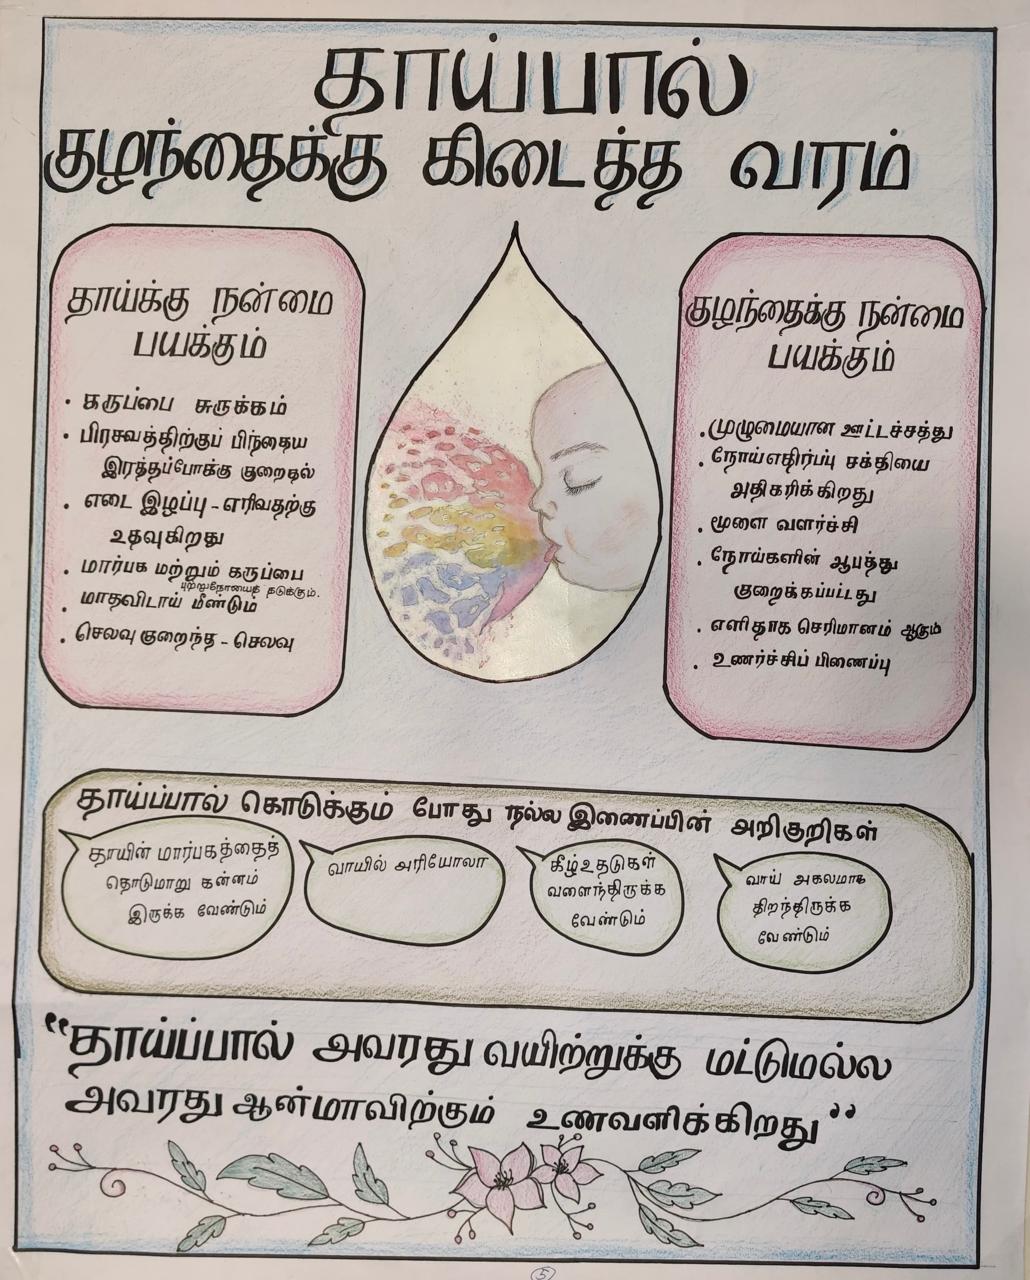 தாய்பால்
குழந்தைக்கு கிடைத்த வரம்
தாய்க்கு நன்மை
பயக்கும்
• கருப்பை சுருக்கம்
• பிரசவத்திற்குப் பிந்தைய
இரத்தப்போக்கு குறைதல்
• எடை இழப்பு - எரிவதற்கு
உதவுகிறது
• மார்பக மற்றும் கருப்பை
புற்றுநோயைத் தடுக்கும்.
• மாதவிடாய் மீண்டும்
• செலவு குறைந்த - செலவு
குழந்தைக்கு நன்மை
பயக்கும்
• முழுமையான ஊட்டச்சத்து
• நோய்எதிர்ப்பு சக்தியை
அதிகரிக்கிறது
• மூளை வளர்ச்சி
• நோய்களின் ஆபத்து
குறைக்கப்பட்டது
• எளிதாக செரிமானம் ஆகும்
• உணர்ச்சிப் பிணைப்பு
தாய்ப்பால் கொடுக்கும் போது நல்ல இணைப்பின் அறிகுறிகள்
தாயின் மார்பகத்தைத்
தொடுமாறு கன்னம்
இருக்க வேண்டும்
வாயில் அரியோலா
கீழ்உதடுகள்
வளைந்திருக்க
வேண்டும்
வாய் அகலமாக
திறந்திருக்க
வேண்டும்
“தாய்ப்பால் அவரது வயிற்றுக்கு மட்டுமல்ல
அவரது ஆன்மாவிற்கும் உணவளிக்கிறது”
5